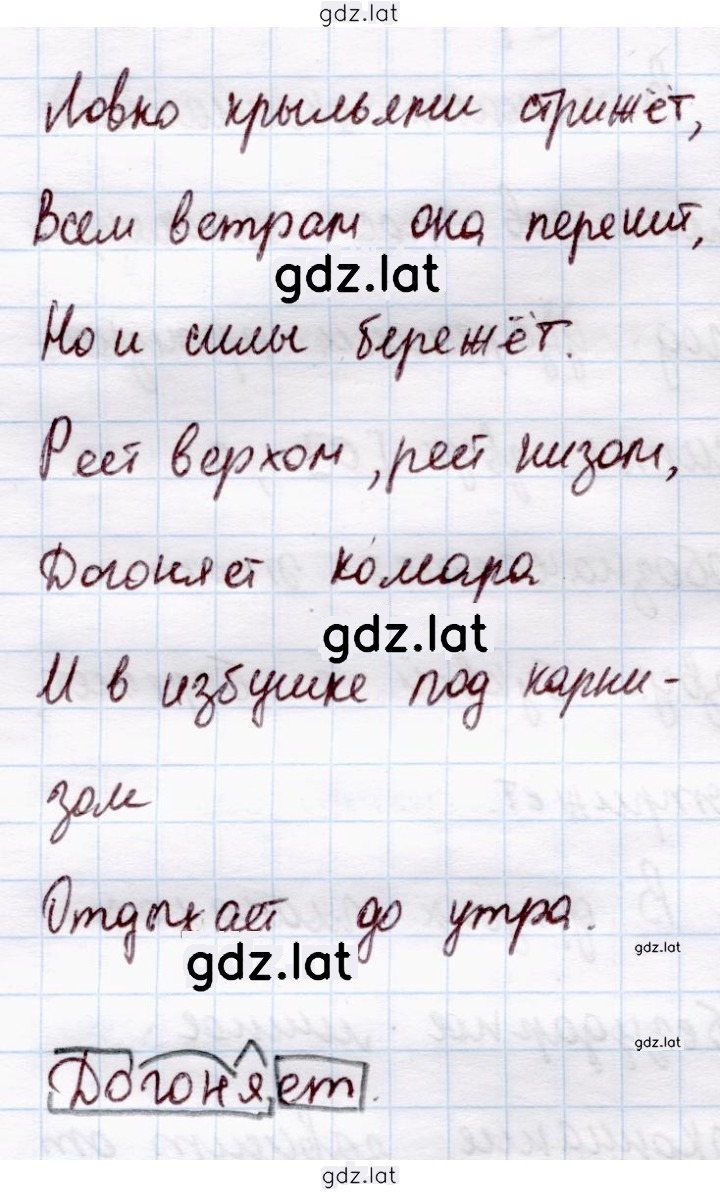 gdz.lat
Ловко крыльями стрижёт,
Всем ветрам она перечит,
gdz.lat
Но и силы бережёт.
Реет верхом, реет низом,
Догоняет комара
gdz.lat
И в избушке под карни-
зом
Отдыхает до утра.
gdz.lat
gdz.lat
gdz.lat
Догоняет.
gdz.lat